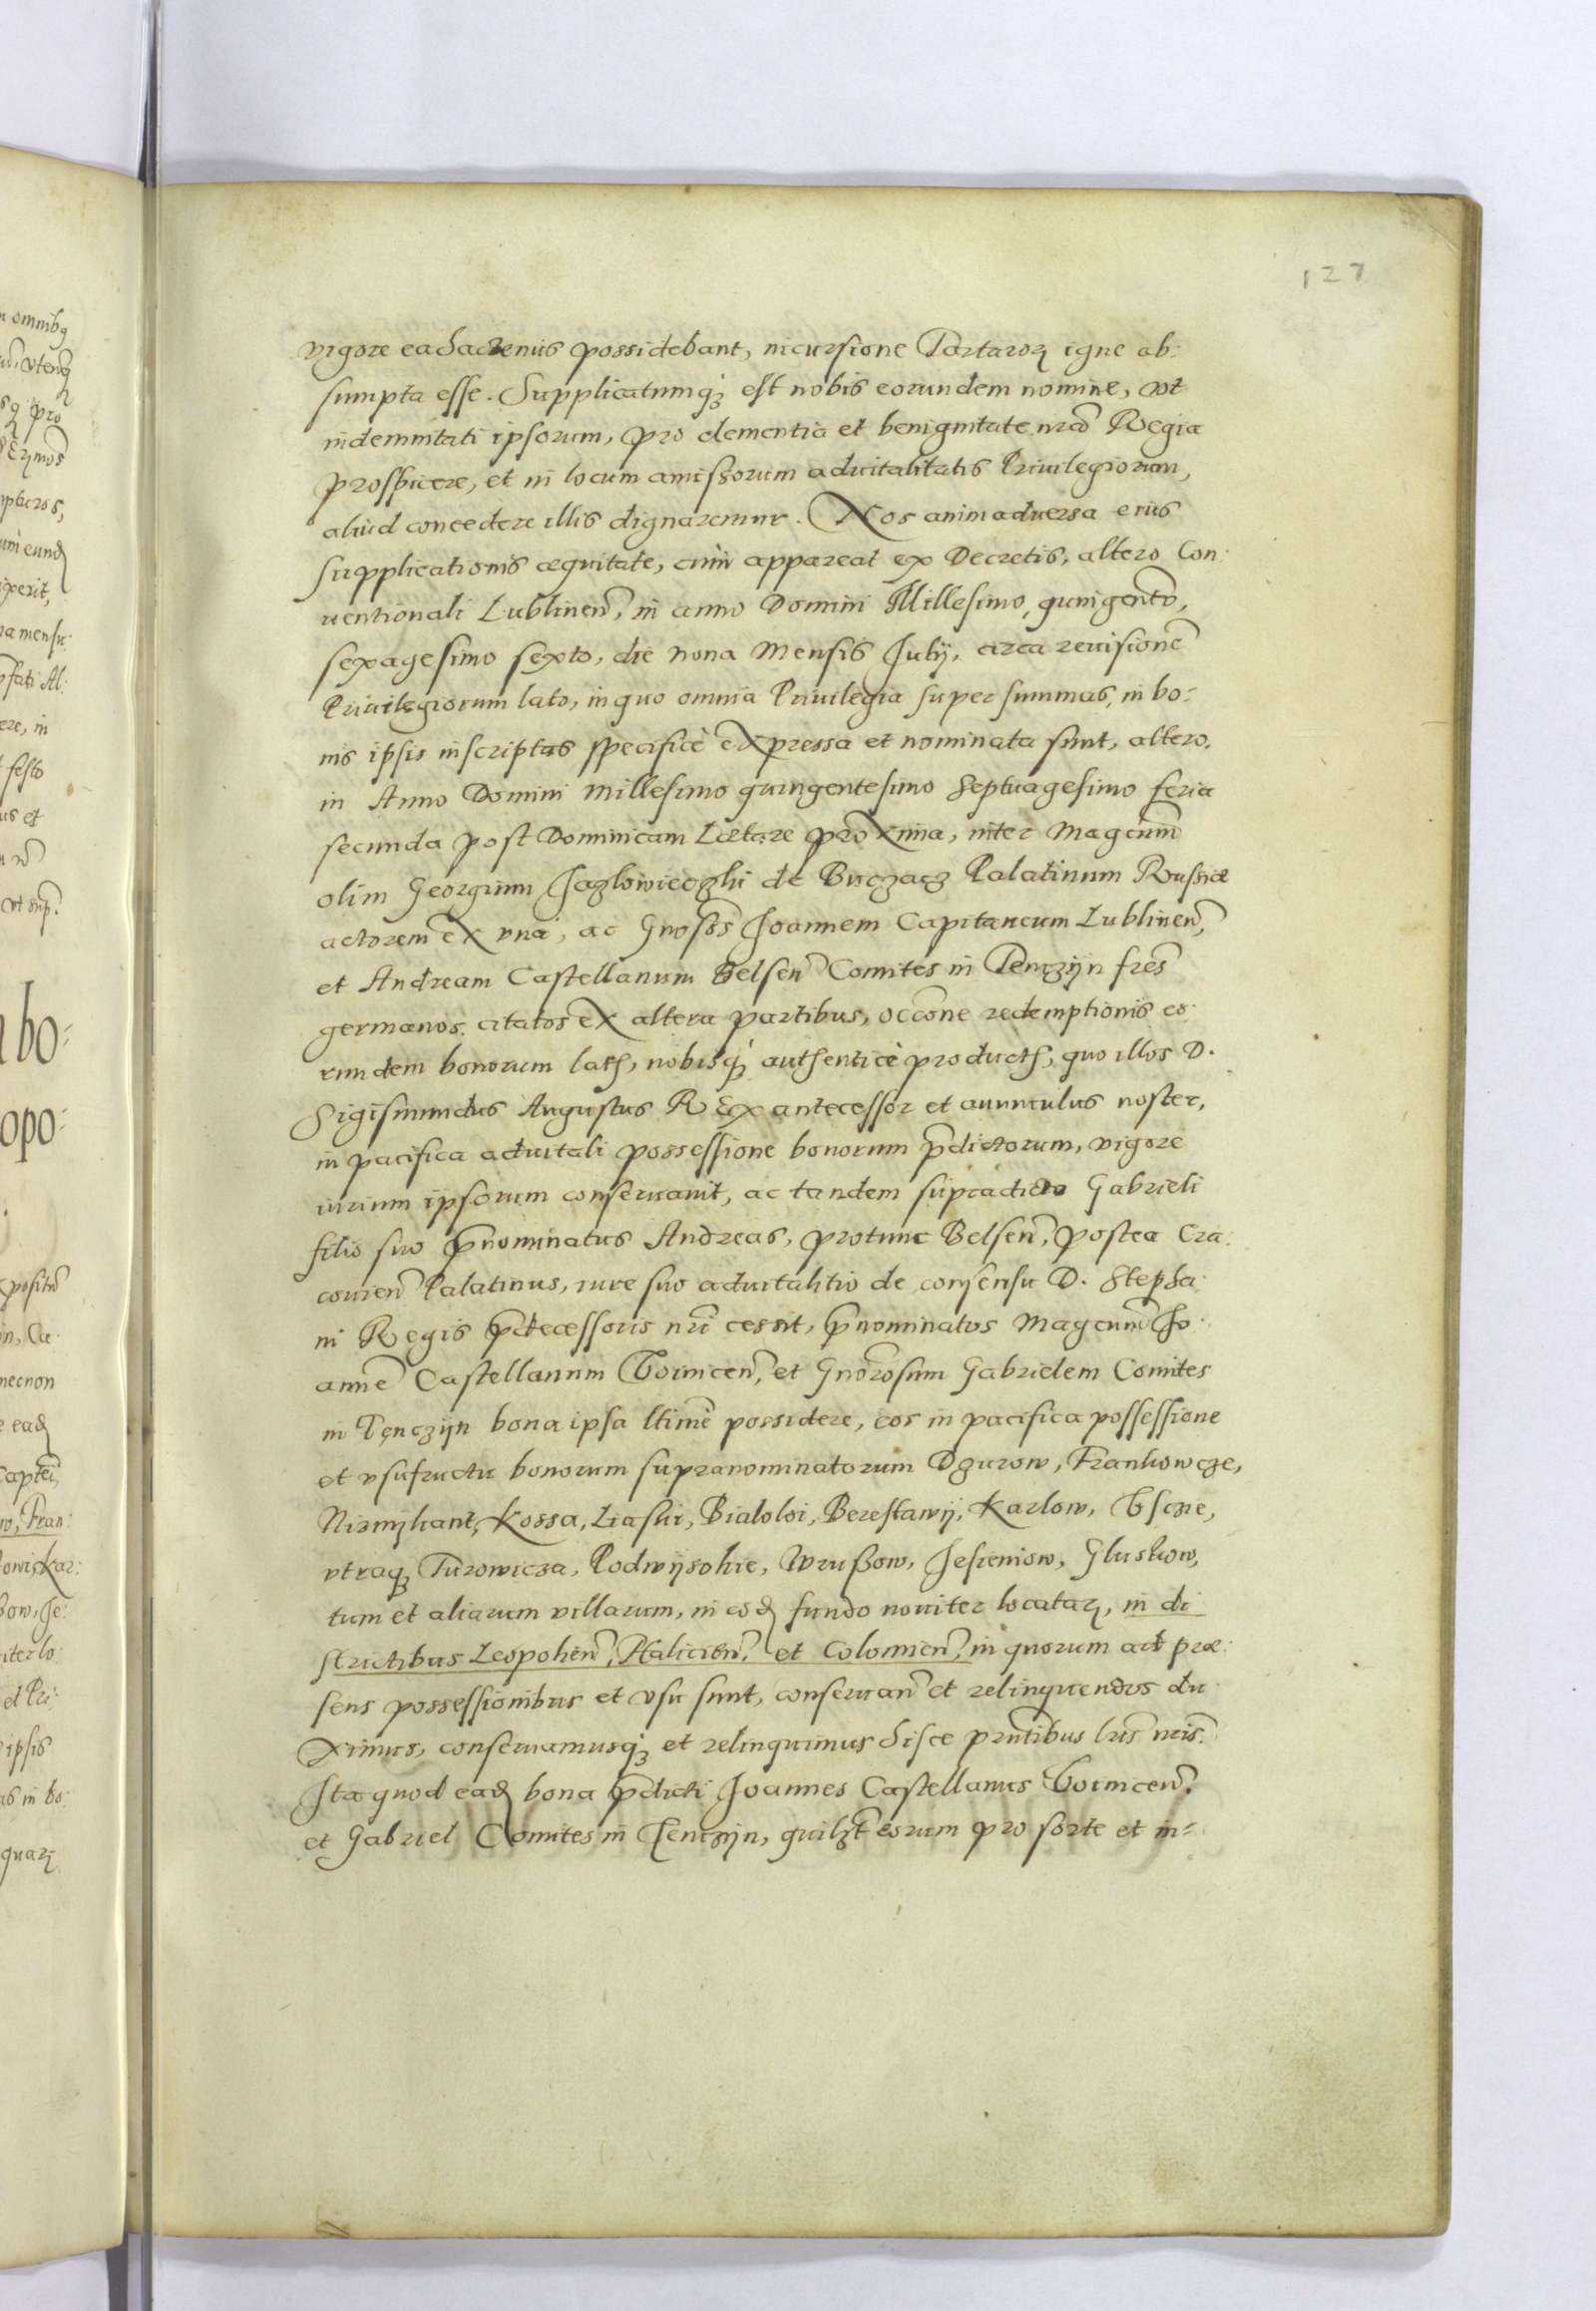 127
vigore ea hactenus possidebant, incursione Tartaroꝝ igne ab:
sumpta esse. Supplicatumqꝫ est nobis eorundem nomine, vt
indemnitati ipsorum, pro clementia et benignitate nrã Regia
prospicere, et in locum amissorum aduitalitatis Priuilegiorum,
aliud concedere illis dignaremur. Nos animaduersa eius
supplicationis æquitate, cùm appareat ex Decretis, altero Con:
uentionali Lublineñ, in anno Domini Millesimo, quingentõ,
sexagesimo sexto, die nona Mensis Julij, circa reuisionẽ
Priuilegiorum lato, in quo omnia Priuilegia super summas, in bo:
nis ipsis inscriptas specificè expressa et nominata sunt, altero,
in Anno Domini Millesimo quingentesimo Septuagesimo feria
secunda post Dominicam Lætare proxima, inter Magcum̃
olim Georgium Jazlowieczki de Buczacz Palatinum Russiæ
actorem ex vna, ac Gnosos̃ Joannem Capitaneum Lublineñ,
et Andream Castellanum Belseñ Comites in Tenczijn fres̃
germanos, citatos ex altera partibus, occõne redemptionis eo:
rundem bonorum lato, nobisqꝫ authenticè producto, quo illos D.
Sigismundus Augustus Rex antecessor et auunculus noster,
in pacifica aduitali possessione bonorum p̃dictorum, vigore
iurium ipsorum conseruauit, ac tandem supradicto Gabrieli
filio suo p̃nominatus Andreas, protunc Belseñ, postea Cra:
couieñ Palatinus, iure suo aduitalitio de consensu D. Stepha:
ni Regis p̃decessoris nrĩ cessit, p̃nominatos Magcum̃ Jo:
annẽ Castellanum Woiniceñ, et Gnõrosum Gabrielem Comites
in Tęnczijn bona ipsa ltimẽ possidere, eos in pacifica possessione
et vsufructu bonorum supranominatorum Dzurow, Frankowcze,
Kossa, Liaski, Bialoloi, Berestawij, Karlow, Vscze,
vtraqꝫ Turowicza, Podwijsokie, Wrußow, Jesieniow, Gluskow,
tum et aliarum villarum, in eoď fundo nouiter locataꝝ, in di:
strictibus Leopolieñ, Halicieñ, et Colomieñ, in quorum ad præ:
sens possessionibus et vsu sunt, conseruañ et relinquendos du:
ximus, conseruamusqꝫ et relinquimus hisce prñtibus lris̃ nris̃.
Ita quod eaď bona p̃dicti Joannes Castellanus Woiniceñ,
et Gabriel Comites in Tenczijn, quilꝫt eorum pro sorte et in=